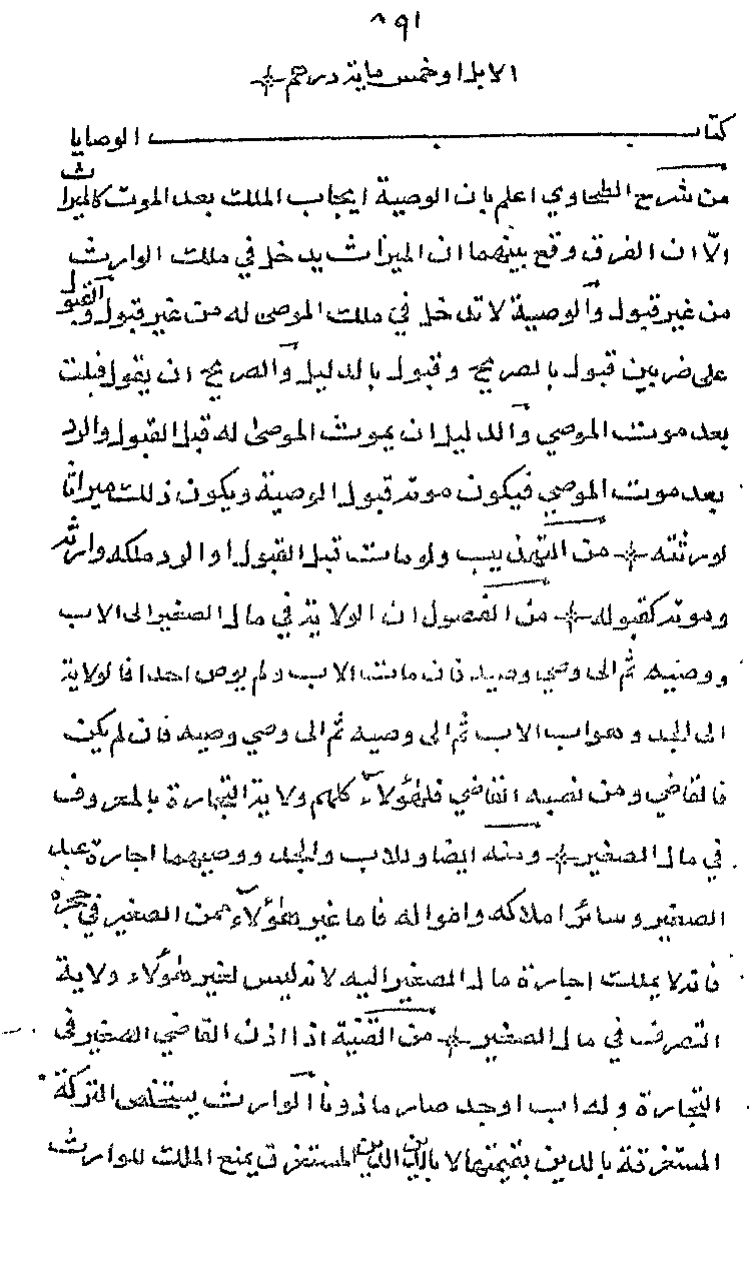 ٨٩١
الابل او خمسماية درهم
كتاب الوصايا
من شرح الطحاوي اعلم بان الوصية ايجاب الملك بعد الموت كالميراث
الّا ان الفرق وقع بينهما ان الميراث يدخل في ملك الوارث
من غير قبول والوصية لا تدخل في ملك الموصى له من غير قبول والقبول
على ضربين قبول بالصريح وقبول بالدليل والصريح ان يقول قبلت
بعد موت الموصي والدليل ان يموت الموصى له قبل القبول والرد
بعد موت الموصي فيكون موته قبول الوصية ويكون ذلك ميراثا
لورثته من التهذيب ولو مات قبل القبول او الرد ملكه وارثه
وموته كقبوله من الفصول ان الولاية في مال الصغير الى الاب
ووصيه ثم الى وصي وصيه فان مات الاب ولم يوص احدا فالولاية
الى الجد وهو اب الاب ثم الى وصيه ثم الى وصي وصيه فان لم يكن
فالقاضي ومن نصبه القاضي فلهؤلاء كلهم ولاية التجارة بالمعروف
في مال الصغير ومنه ايضا وللاب والجد ووصيهما اجارة عبد
الصغير وسائر املاكه وامواله فاما غير هؤلاء ممن الصغير في حجره
فانه لا يملك اجارة مال الصغير اليه لانه ليس لغير هؤلاء ولاية
التصرف في مال الصغير من القنية اذا اذن القاضي الصغير في
التجارة وله اب او جد صار ماذونا الوارث يستخلص التركة
المستغرقة بالدين بقيمتها لا بالدين الدين المستغرق يمنع الملك للوارث